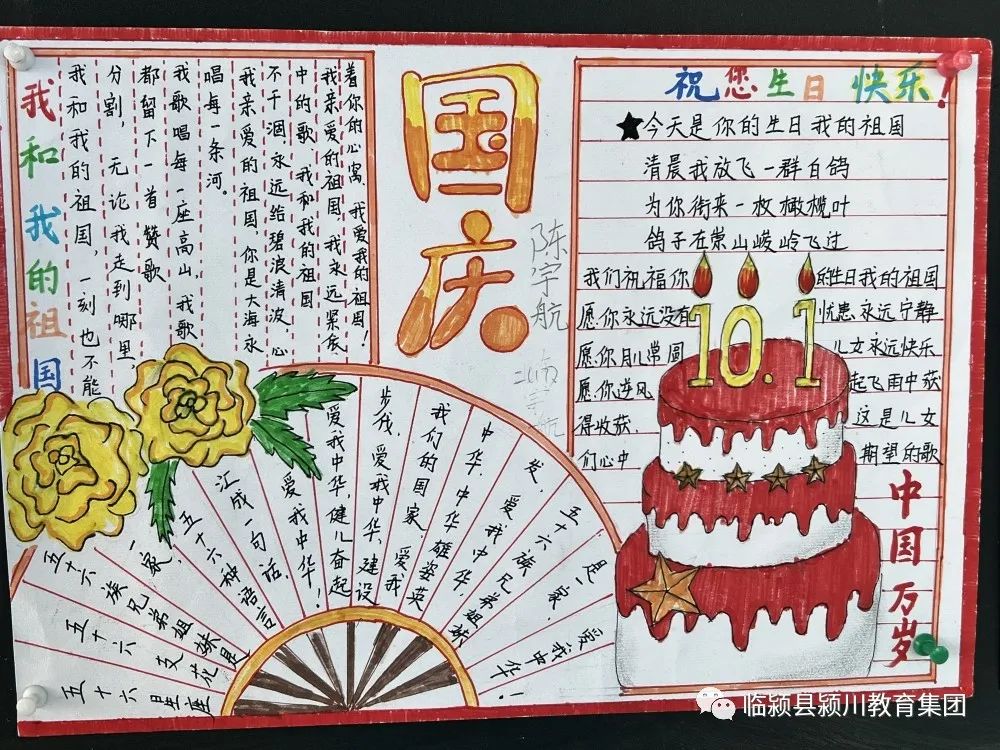 我和我的祖国
我和我的祖国,一刻也不能
分割,无论我走到哪里,
都留下一首赞歌
我歌唱每一座高山,我歌
唱每一条河。
我亲爱的祖国,你是大海永
不干涸永远给碧浪清波,心
中的歌 我和我的祖国
我亲爱的祖国,我永远紧依
着你的心窝,我爱我的祖国!
国庆
陈宇航
祝您生日快乐!
今天是你的生日我的祖国
清晨我放飞一群白鸽
为你衔来一枚橄榄叶
鸽子在崇山峻岭飞过
我们祝福你的生日我的祖国
愿你永远没有忧患永远宁静
愿你月儿常圆儿女永远快乐
愿你逆风起飞雨中获
得收获这是儿女
们心中期望的歌
10.1
中国万岁
五十六星座
五十六支花
五十六族兄弟姐妹是
一家
五十六种语言
汇成一句话,
爱我中华!
爱我中华,健儿奋起
步伐,爱我中华,建设
我们的国家,爱我
中华,中华雄姿英
发,爱我中华
五十六族兄弟姐妹
是一家,爱我中华!
临颍县颍川教育集团